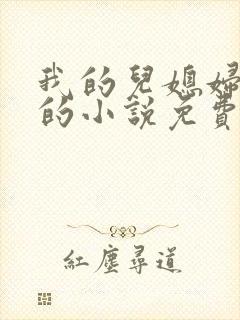 我的兒媳婦
的小說免費
紅塵尋道